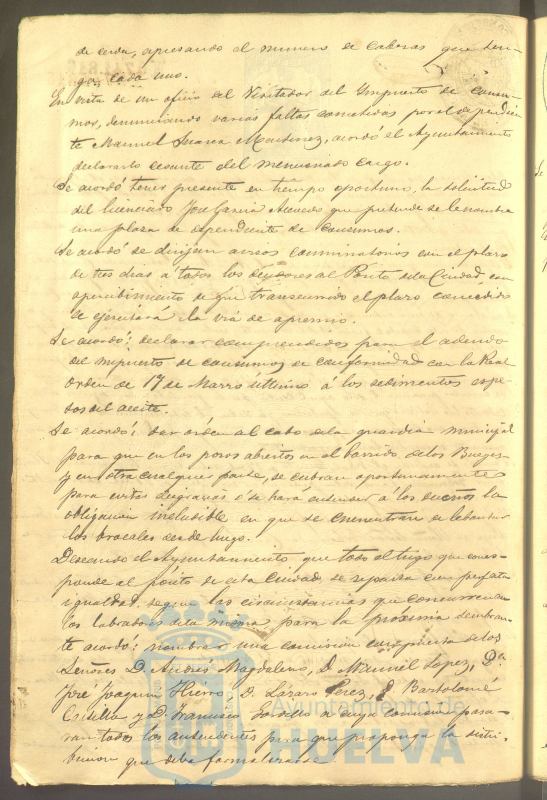 de cerda, expresando el numero de cabezas que ten-
ga cada uno.
En vista de un oficio del Visitador del Impuesto de Consu-
mos, denunciando varias faltas cometidas por el dependien
te Manuel Suarez Martinez, acordó el Ayuntamiento
declararlo cesante del mencionado cargo.
Se acordó tener presente en tiempo oportuno, la solicitud
del licenciado José Garcia que pretende se le nombre
una plaza de dependiente de consumos.
Se acordó se dirijan avisos conminatorios con el plazo
de tres dias á todos los deudores al Posito de la Ciudad, con
apercibimiento de que transcurrido el plazo concedido
se ejercitará la via de apremio.
Se acordó: declarar comprendidos para el adeudo
del impuesto de consumos de conformidad con la Real
orden de 17 de Marzo ultimo á los sedimentos espe-
sos del aceite.
Se acordó: dar orden al cabo de la guardia municipal
para que en los pozos abiertos en el barrido de los
y en otra cualquier parte, se cubran oportunamente
para evitar desgracias y se hará entender á los dueños la
obligacion ineludible en que se encuentran de lebantar
los brocales desde luego.
Deseando el Ayuntamiento que todo el trigo que corres-
ponde al pósito de esta Ciudad se reparta con perfecta
igualdad segun las circunstancias que concurran en
los labradores de la misma para la próxima semban
te acordó: nombrar una comision compuesta de los
Señores D. Andrés Magdaleno, D. Manuel Lopez, Dn
José Joaquin Hierro, D. Lázaro Perez, D. Bartolomé
Cordilla y D. Francisco Gordillo á cuya comision pasa-
ran todos los antecedentes para que proponga la distri-
bucion que deba formalizarse.
Ayuntamiento de
HUELVA